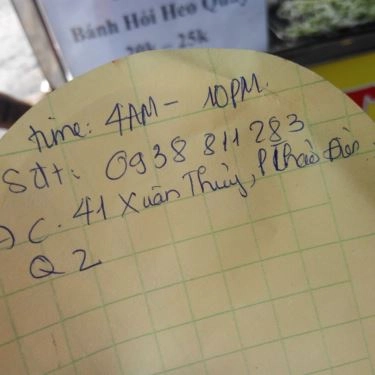 Bánh Hỏi Heo Quay
20k - 25k
time: 4AM - 10PM.
Sđt: 0938 811 283
Đ/C. 41 Xuân Thủy, P Thảo Điền
Q 2